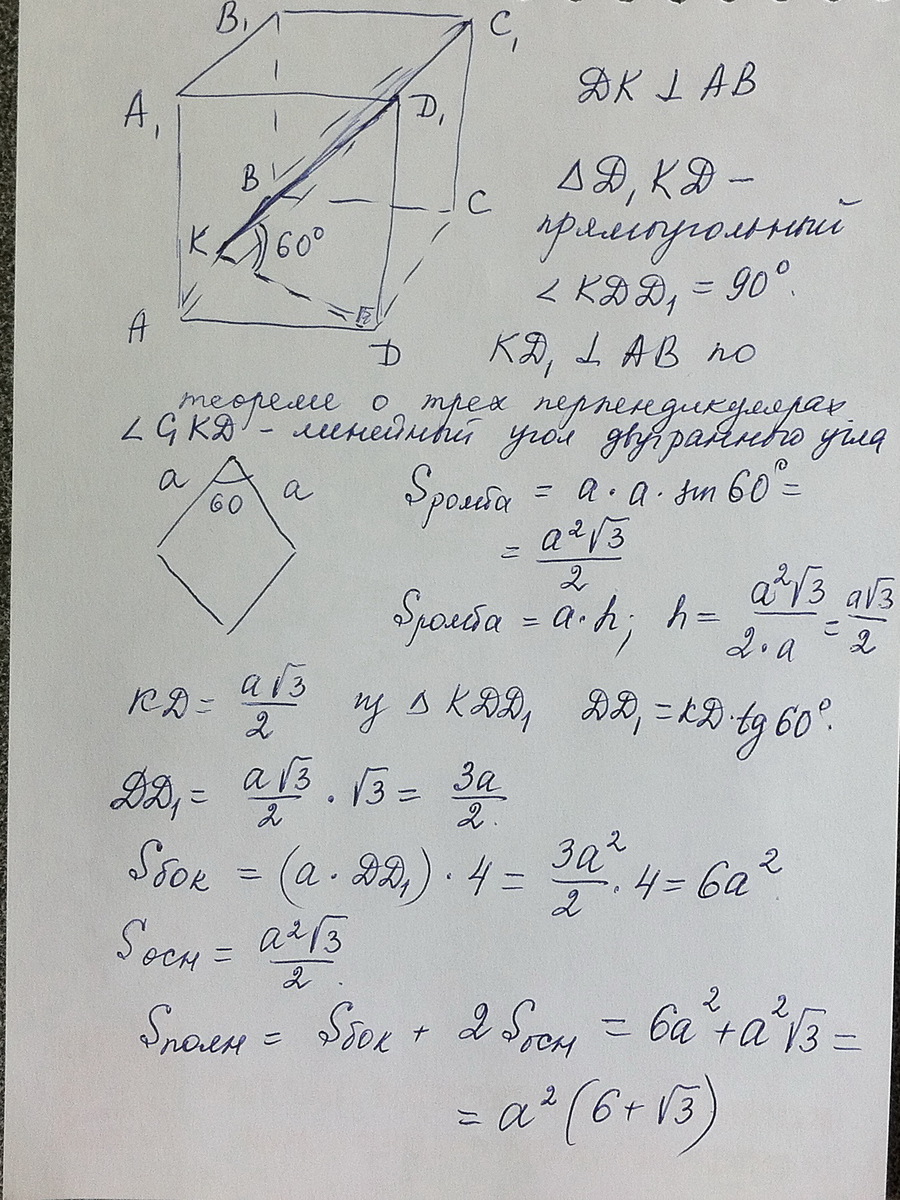 B₁
C₁
A₁
D₁
B
C
K
60°
A
D
DK ⊥ AB
△D₁KD –
прямоугольный
∠KDD₁ = 90°.
KD₁ ⊥ AB по
теореме о трех перпендикулярах
∠C₁KD – линейный угол двугранного угла
a
a
60
Sромба = a · a · sin 60° =
= a²√3/2
Sромба = a · h; h = a²√3/2·a = a√3/2
KD = a√3/2 из △KDD₁ DD₁ = KD·tg 60°.
DD₁ = a√3/2 · √3 = 3a/2.
Sбок = (a · DD₁) · 4 = 3a²/2 · 4 = 6a²
Sосн = a²√3/2.
Sполн = Sбок + 2 Sосн = 6a² + a²√3 =
= a² (6 + √3)